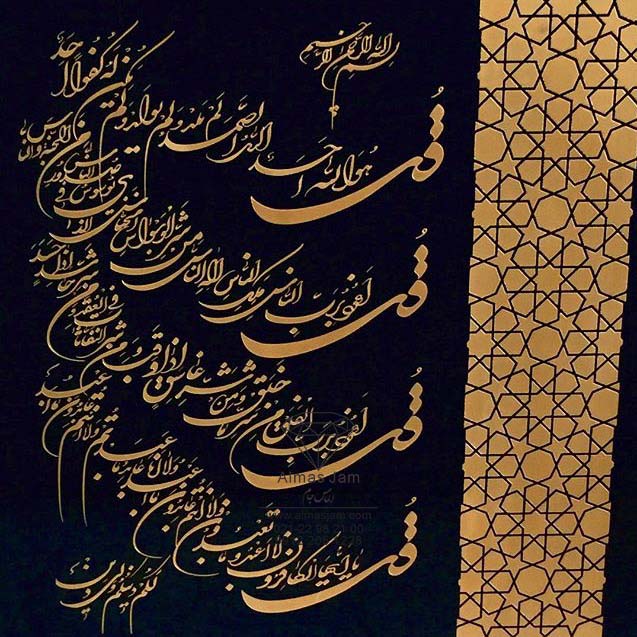 بسم الله الرحمن الرحیم
قل هو الله احد الله الصمد لم یلد و لم یولد و لم یکن له کفوا احد
قل اعوذ برب الناس ملک الناس اله الناس من شر الوسواس الخناس الذی یوسوس فی صدور الناس من الجنة و الناس
قل اعوذ برب الفلق من شر ما خلق و من شر غاسق اذا وقب و من شر النفاثات فی العقد و من شر حاسد اذا حسد
قل یا ایها الکافرون لا اعبد ما تعبدون و لا انتم عابدون ما اعبد و لا انا عابد ما عبدتم و لا انتم عابدون ما اعبد
لکم دینکم ولی دین
Almas Jam
الماس جام
www.almasjam.com